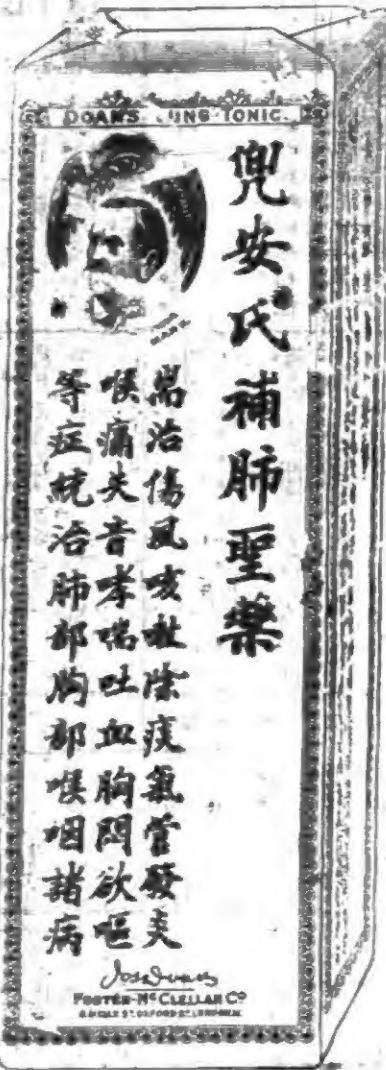 DOAN'S LUNG-TONIC.
兜安氏補肺聖藥
耑治傷風咳嗽除痰氣管發炎
喉痛失音哮喘吐血胸悶欲嘔
等症統治肺部胸部喉咽諸病
FOSTER-McCLELLAN Co